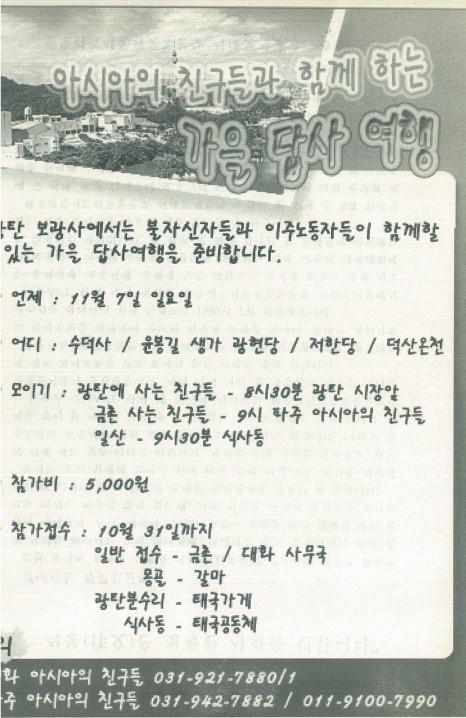 아시아의 친구들과 함께 하는
가을 답사 여행
탄 보광사에서는 불자신자들과 이주노동자들이 함께할
있는 가을 답사여행을 준비합니다.
언제 : 11월 7일 일요일
어디 : 수덕사 / 윤봉길 생가 광현당 / 저한당 / 덕산온천
모이기 : 광탄에 사는 친구들 - 8시30분 광탄 시장앞
금촌 사는 친구들 - 9시 파주 아시아의 친구들
일산 - 9시30분 식사동
참가비 : 5,000원
참가접수 : 10월 31일까지
일반 접수 - 금촌 / 대화 사무국
몽골 - 갈마
광탄분수리 - 태국가게
식사동 - 태국공동체
의
화 아시아의 친구들 031-921-7880/1
주 아시아의 친구들 031-942-7882 / 011-9100-7990